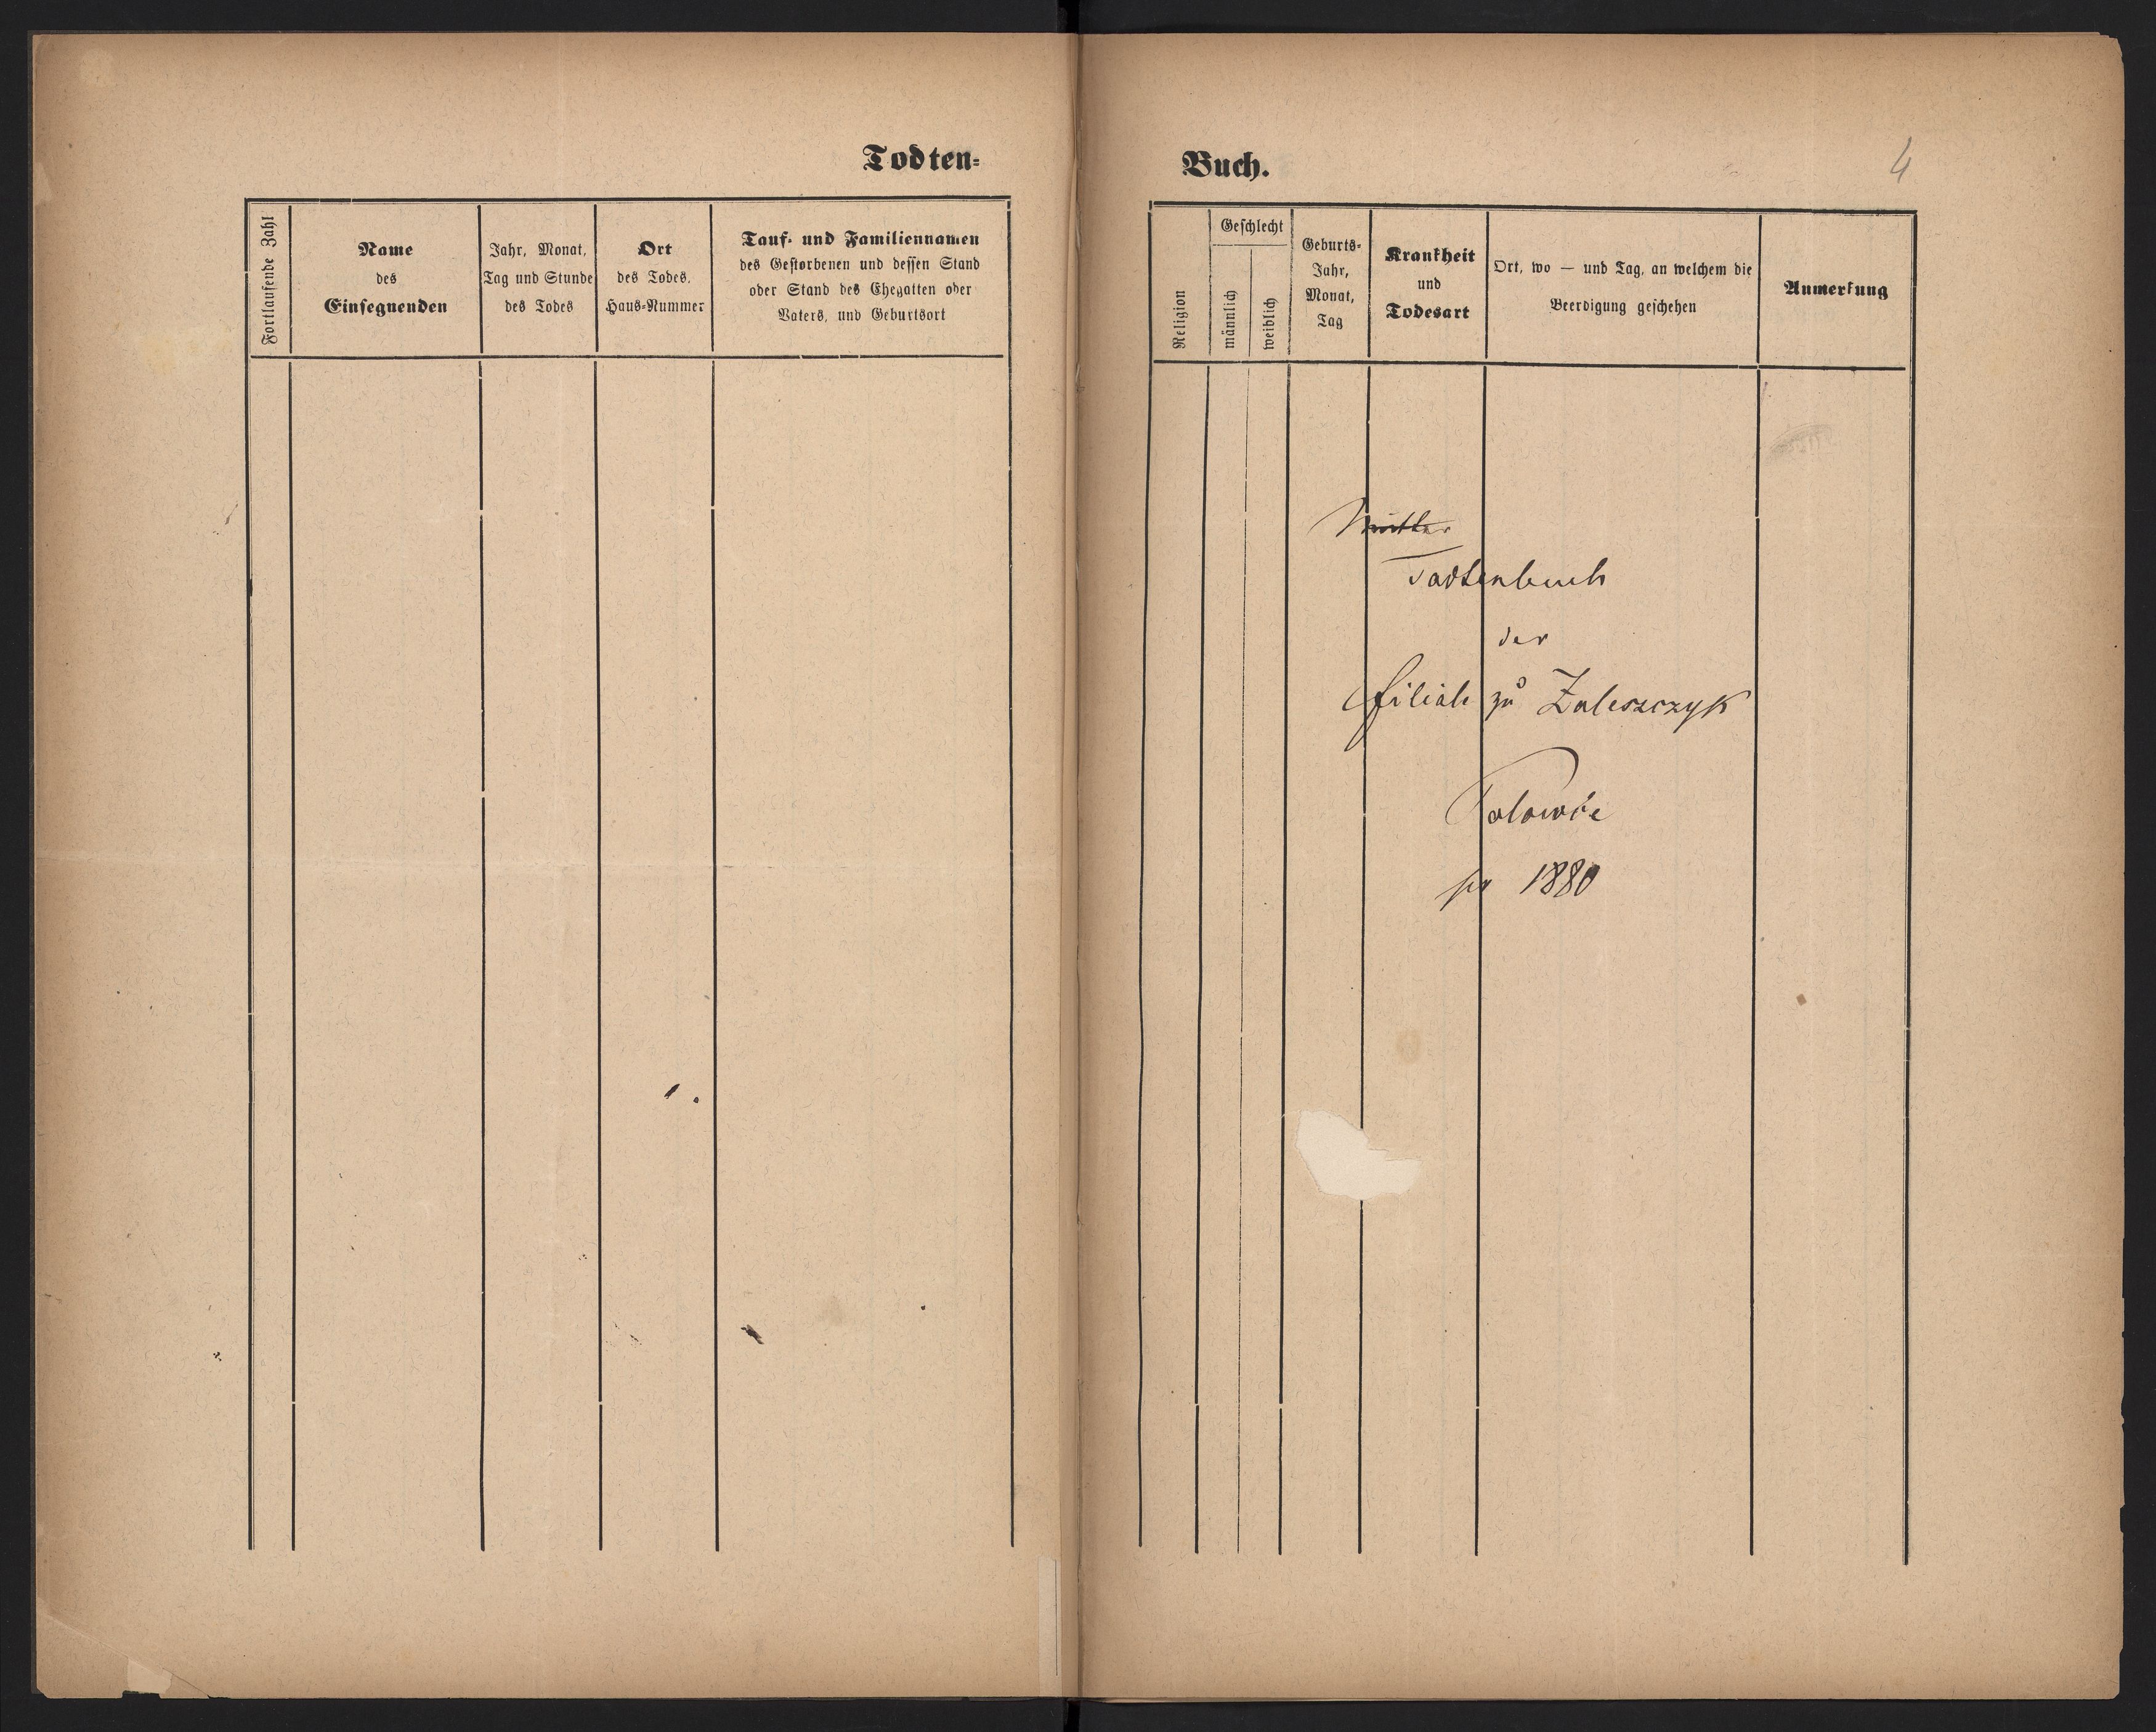 Todten=
Fortlaufende Zahl
Name
des
Einsegnenden
Jahr, Monat,
Tag und Stunde
des Todes
Ort
des Todes,
Haus-Nummer
Tauf- und Familiennamen
des Gestorbenen und dessen Stand
oder Stand des Ehegatten oder
Vaters, und Geburtsort
Buch.
4
Religion
Geschlecht
männlich
weiblich
Geburts-
Jahr,
Monat,
Tag
Krankheit
und
Todesart
Ort, wo — und Tag, an welchem die
Beerdigung geschehen
Anmerkung
Todtenbuch
der
Filiale zu Zaleszczyk
pro 1880